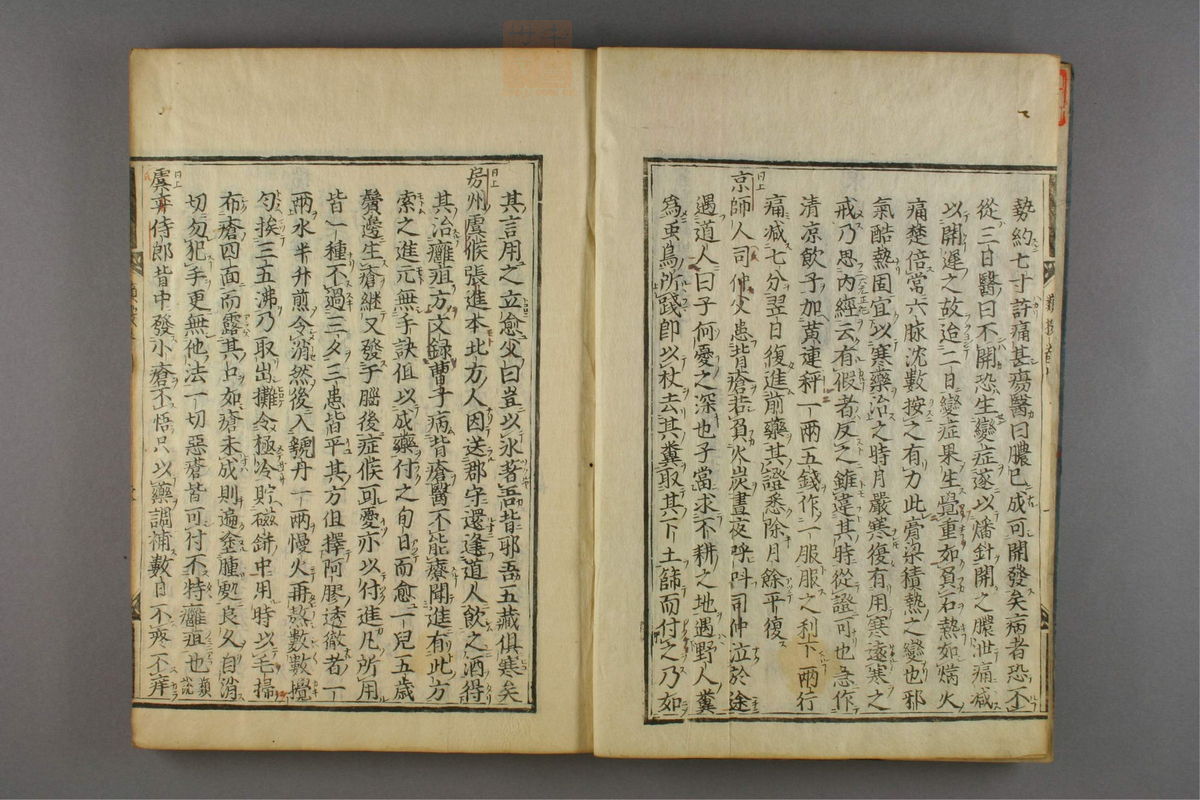 勢約七寸許痛甚瘍醫曰膿已成可開發矣病者恐不
從三日醫曰不開恐生變症遂以燔針開之膿泄痛減
以開遲之故迨二日變症果生覺重如負石熱如焫火
痛楚倍當六脉沈數按之有力此膏梁積熱之變也邪
氣酷熱固宜以寒藥治之時月嚴寒復有用寒遠寒之
戒乃思內經云有假者反之雖違其時從證可也急作
清凉飲子加黃連秤一兩五錢作一服服之利下兩行
痛減七分翌日復進前藥其證悉除月餘平復
京師人司仲父患背瘡若負火炭晝夜呼呌司仲泣於途
遇道人曰子何憂之深也子當求不耕之地遇野人糞
爲䖝鳥所踐卽以杖去其糞取其下土篩而付之乃如
其言用之立愈父曰豈以氷著吾背耶吾五藏俱寒矣
房州虞候張進本北方人因送郡守還逢道人飲之酒得
其治癰疽方文録曹子病背瘡醫不能療聞進有此方
索之進元無手訣但以成藥付之旬日而愈一兒五歲
鬢邊生瘡継又發于腦後症候可憂亦以付進凡所用
皆一種不過三夕三患皆平其方但擇阿膠透徹者一
兩水半升煎令消然後入虢丹一兩慢火再熬數數攪
勻挨三五沸乃取出攤令極冷貯磁缾中用時以毛掃
布瘡四面而露其口如瘡未成則遍塗腫處良久自消
切勿犯手更無他法一切惡瘡皆可付不特癰疽也 類說
虞奕侍郎背中發小瘡不悟只以藥調補數日不疼不痒